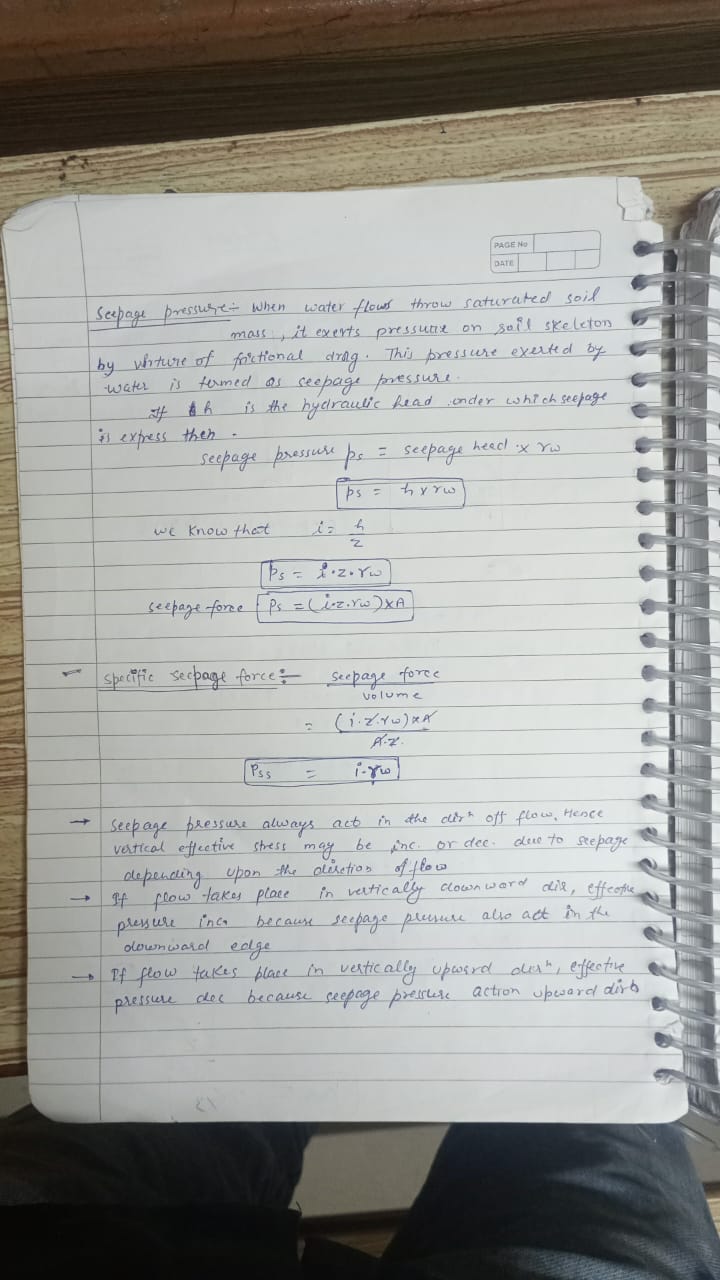 PAGE No
DATE
Seepage pressure :- when water flows throw saturated soil
mass, it exerts pressure on soil skeleton
by virture of frictional drag. This pressure exerted by
water is termed as seepage pressure.
If h is the hydraulic head onder which seepage
is express then.
seepage pressure ps = seepage head × γw
ps = h × γw
we know that i = h/z
Ps = i.z.γw
seepage force Ps = (i.z.γw) × A
specific seepage force :- seepage force
volume
= (i.z.γw) × A
A.z.
Pss = i.γw
→ seepage pressure always act in the dirn off flow, Hence
vertical effective stress may be inc. or dec. due to seepage
depending upon the diretion of flow
→ If flow takes place in vertically downward dir, effective
pressure inc. because seepage pressure also act in the
downward edge
→ If flow takes place in vertically upward dirn, effective
pressure dec because seepage pressure action upward dirn